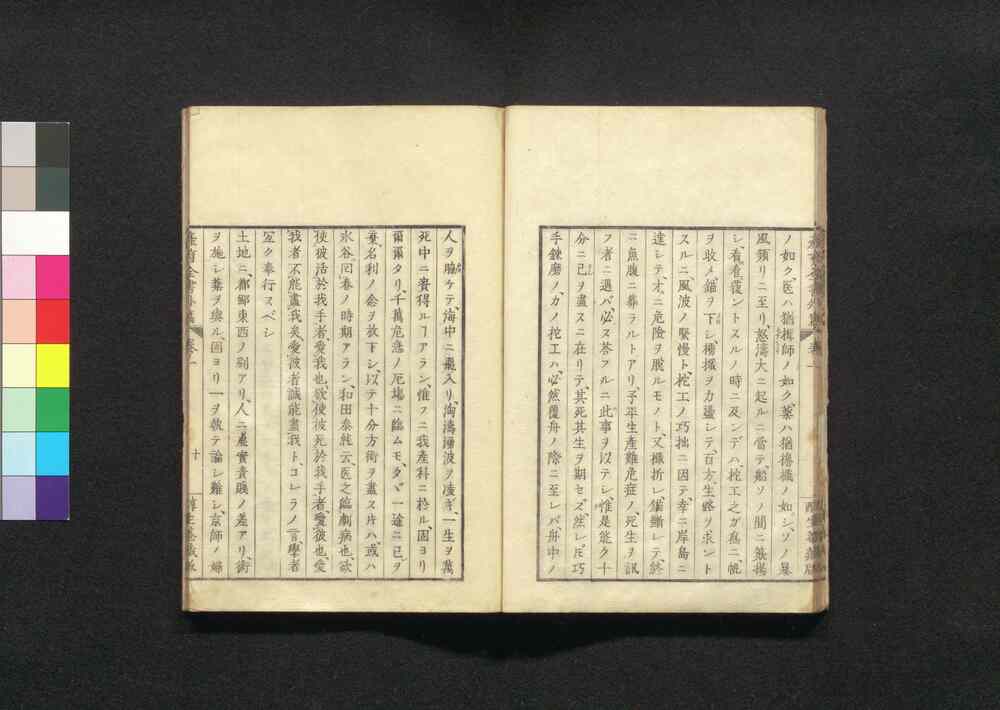 ノ如ク、医ハ猶揖師ノ如ク、藥ハ猶櫓檝ノ如シ、ソノ暴
風頻リニ至リ、怒濤大ニ起ルニ當テ、船ソノ間ニ簸揚
シ、看看覆ントスルノ時ニ及ンデハ、柁工之ガ爲ニ、帆
ヲ收メ、錨ヲ下シ、櫓擢ヲカ盡シテ、百方生路ヲ求ント
スルニ、風波ノ緊慢ト、柁工ノ巧拙ニ因テ、幸ニ岸島ニ
達シテ、才ニ危險ヲ脫ルモノト、又檝折レ、錨斷レテ、終
ニ魚腹ニ葬ラルトアリ、予平生産難危症ノ、死生ヲ訊
フ者ニ遇バ、必ス荅フルニ、此事ヲ以テシ、惟是能ク十
分ニ己ヲ盡スニ在リテ、其死其生ヲ期セズ、然レ𪜈巧
手鍊磨ノ、カノ柁工ハ、必然覆舟ノ際ニ至レバ、舟中ノ
人ヲ脇ケテ、海中ニ飛入リ、洶濤湧波ヲ凌ギ、一生ヲ萬
死中ニ賚得ルヿアラン、惟フニ我産科ニ於ル、固ヨリ
爾爾タリ、千萬危急ノ厄塲ニ臨ムモ、タヾ一途ニ己ヲ
棄、名利ノ念ヲ放下シ、以テ十分方術ヲ盡スベ、或ハ
氷谷回春ノ時期アラン、和田泰純云、医之臨劇病也、欲
使彼活於我手者、愛我也、欲使彼死於我手者、愛彼也、愛
我者不能盡我矣、愛彼者誠能盡我、ト、コレラノ言、學者
宜ク奉行スベシ
土地ニ、都鄙東西ノ別アリ、人ニ虛實貴賤ノ差アリ、術
ヲ施シ、藥ヲ與ル、固ヨリ一ヲ執テ論シ難シ、京師ノ婦
十